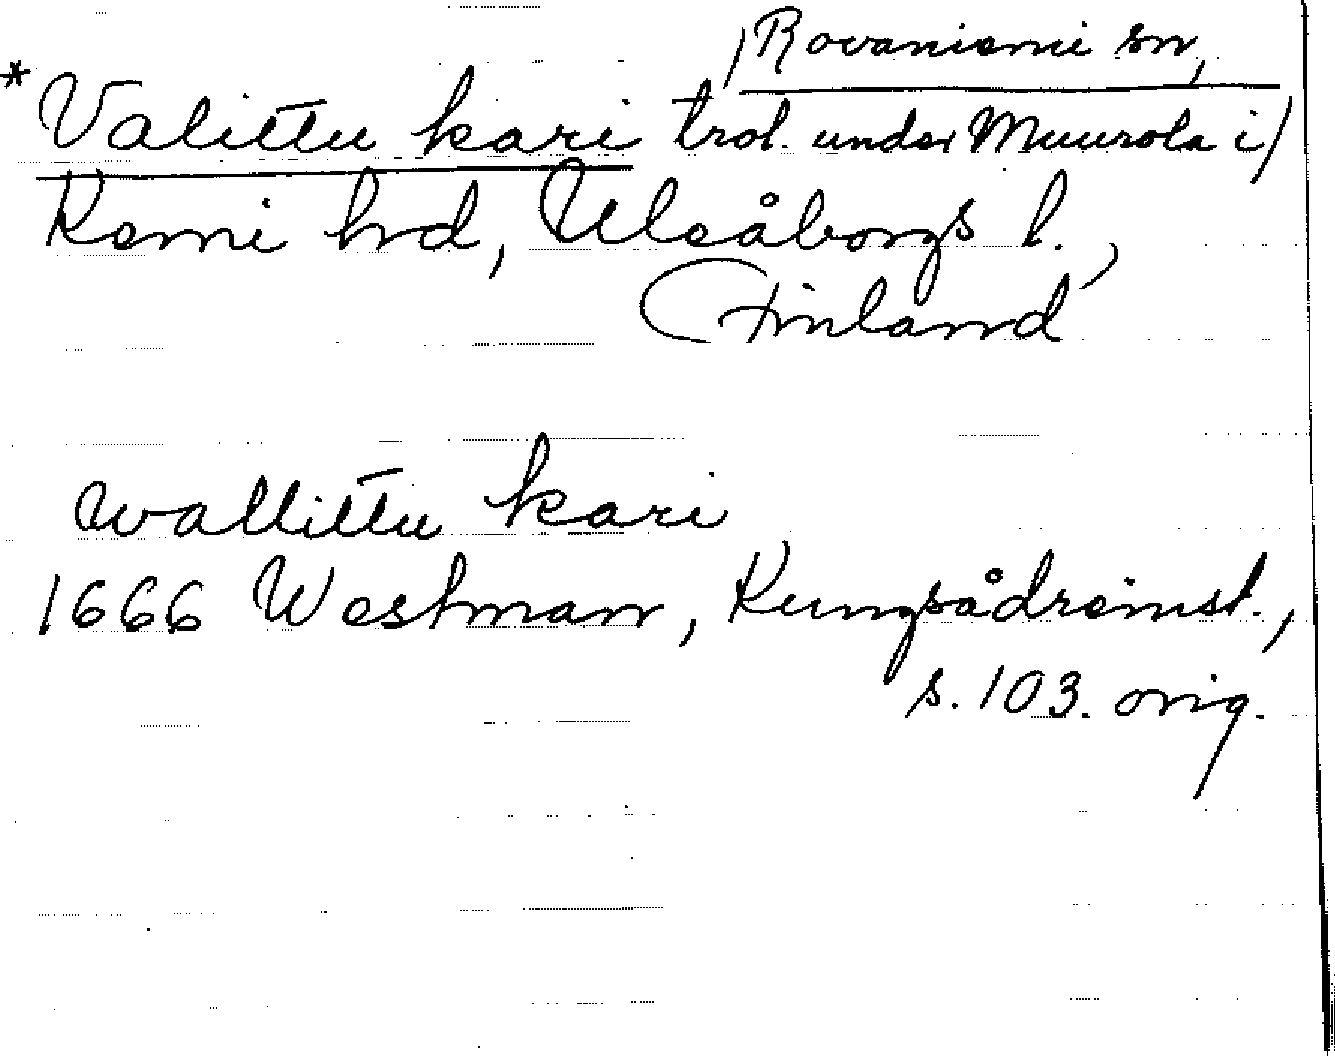 /Rovaniemi sn,
*Valittu kari trol. under Muurola i/
Kemi hrd, Uleåborgs l.,
Finland
Wallittu kari
1666 Westman, Kungsådreinst.,
s. 103. orig.